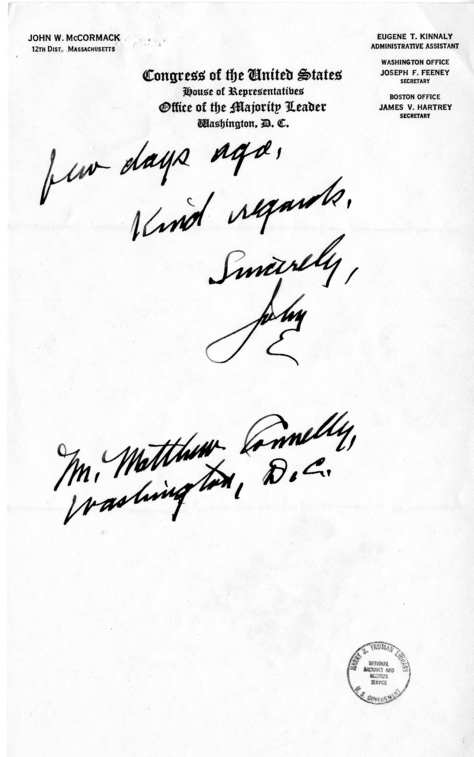 JOHN W. McCORMACK
12TH DIST. MASSACHUSETTS
EUGENE T. KINNALY
ADMINISTRATIVE ASSISTANT
WASHINGTON OFFICE
JOSEPH F. FEENEY
SECRETARY
BOSTON OFFICE
JAMES V. HARTREY
SECRETARY
Congress of the United States
House of Representatives
Office of the Majority Leader
Washington, D. C.
few days ago.
Kind regards.
Sincerely,
John
Mr. Matthew Connelly,
Washington, D.C.
HARRY S. TRUMAN LIBRARY
NATIONAL
ARCHIVES AND
RECORDS
SERVICE
U. S. GOVERNMENT